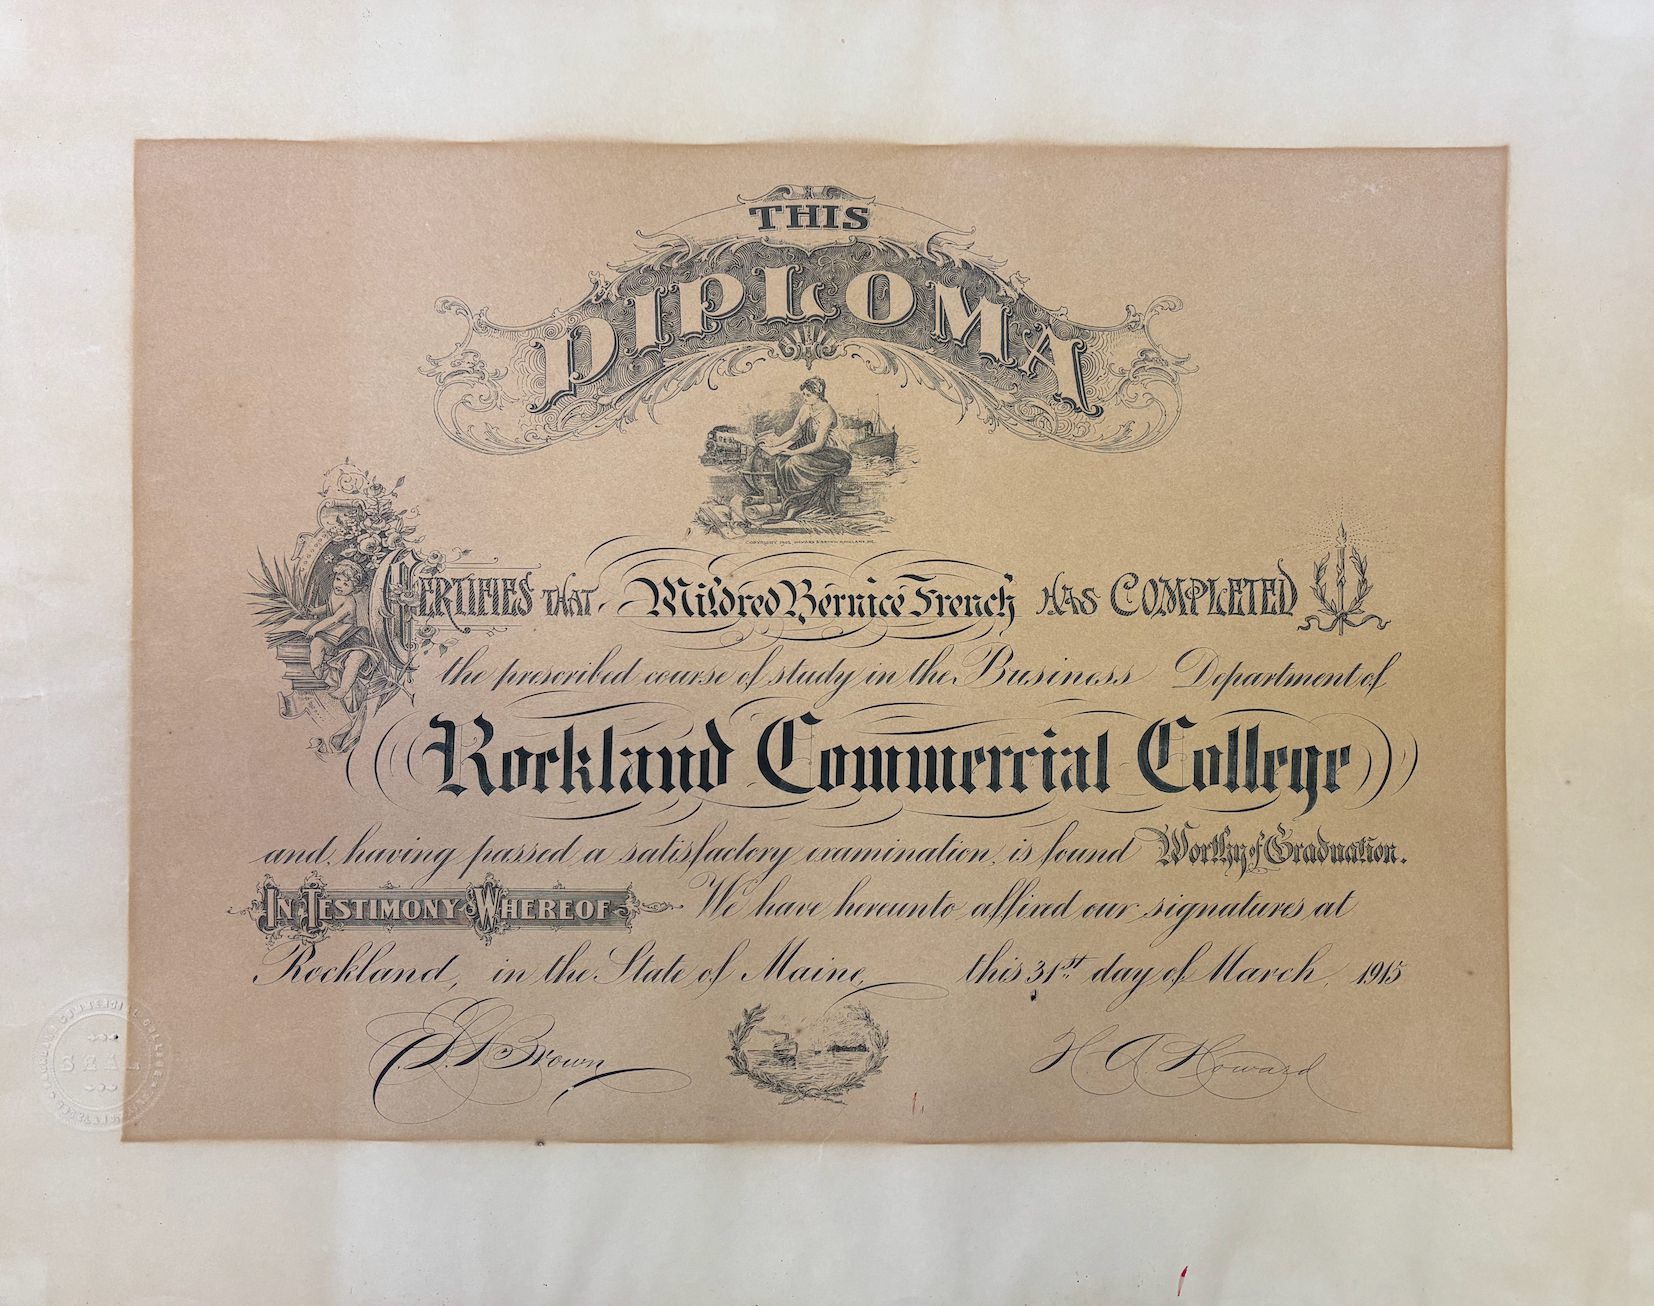 THIS
DIPLOMA
COPYRIGHT 1902, HOWARD & BROWN, ROCKLAND, ME.
CERTIFIES THAT Mildred Bernice French HAS COMPLETED
the prescribed course of study in the Business Department of
Rockland Commercial College
and, having passed a satisfactory examination, is found Worthy of Graduation.
IN TESTIMONY WHEREOF We have hereunto affixed our signatures at
Rockland, in the State of Maine, this 31st day of March, 1915
Brown
H. A. Howard
SEAL